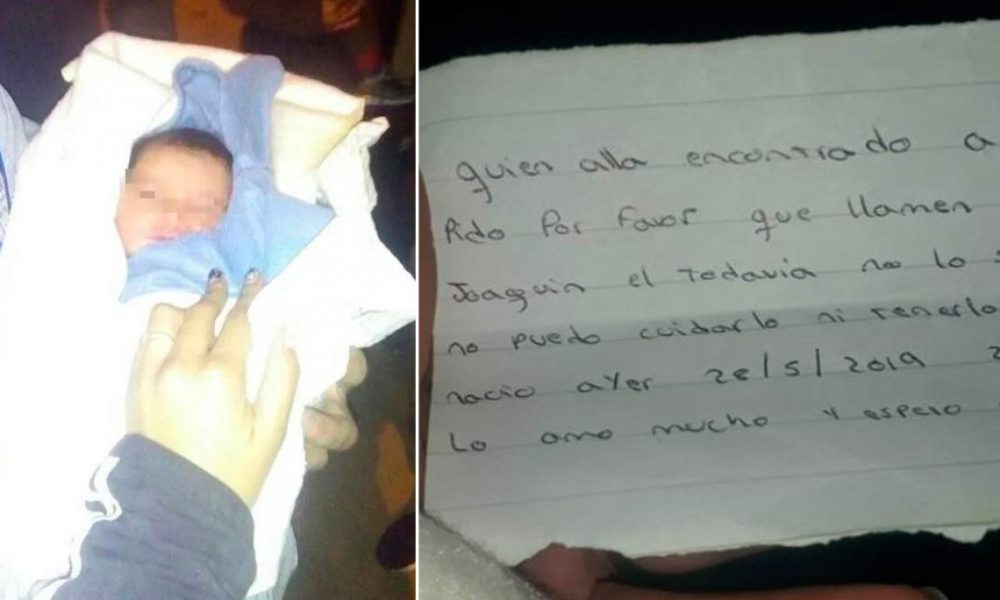 quien alla encontrado a
Pido Por Favor que llamen
Joaquin el Todavia no lo
no puedo cuidarlo ni tenerlo
nacio ayer 28/5/2019
Lo amo mucho y espero